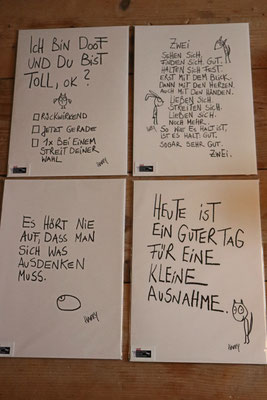 ICH BIN DOOF
UND DU BIST
TOLL, OK?
RÜCKWIRKEND
JETZT GERADE
1x BEI EINEM
STREIT DEINER
WAHL
ZWEI
SEHEN SICH.
FINDEN SICH. GUT.
HALTEN SICH FEST.
ERST MIT DEM BLICK.
DANN MIT DEN HERZEN.
AUCH MIT DEN HÄNDEN.
LIEBEN SICH.
STREITEN SICH.
LIEBEN SICH.
NOCH MEHR.
SO WIE ES HALT IST,
IST ES HALT GUT.
SOGAR SEHR GUT.
ZWEI.
ES HÖRT NIE
AUF, DASS MAN
SICH WAS
AUSDENKEN
MUSS.
HEUTE IST
EIN GUTER TAG
FÜR EINE
KLEINE
AUSNAHME.